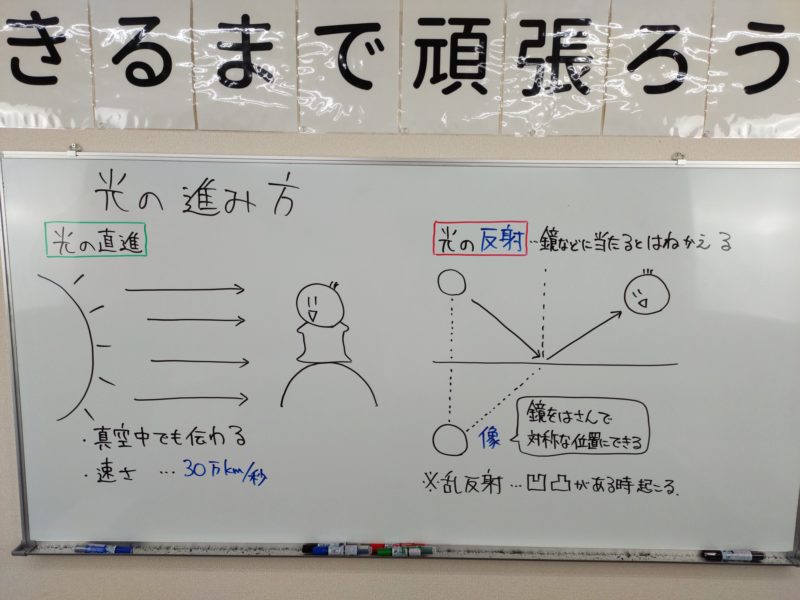 きるまで頑張ろう
光の進み方
光の直進
・真空中でも伝わる
・速さ …30万km/秒
光の反射…鏡などに当たるとはねかえる
像
鏡をはさんで
対称な位置にできる
※乱反射…凹凸がある時起こる.